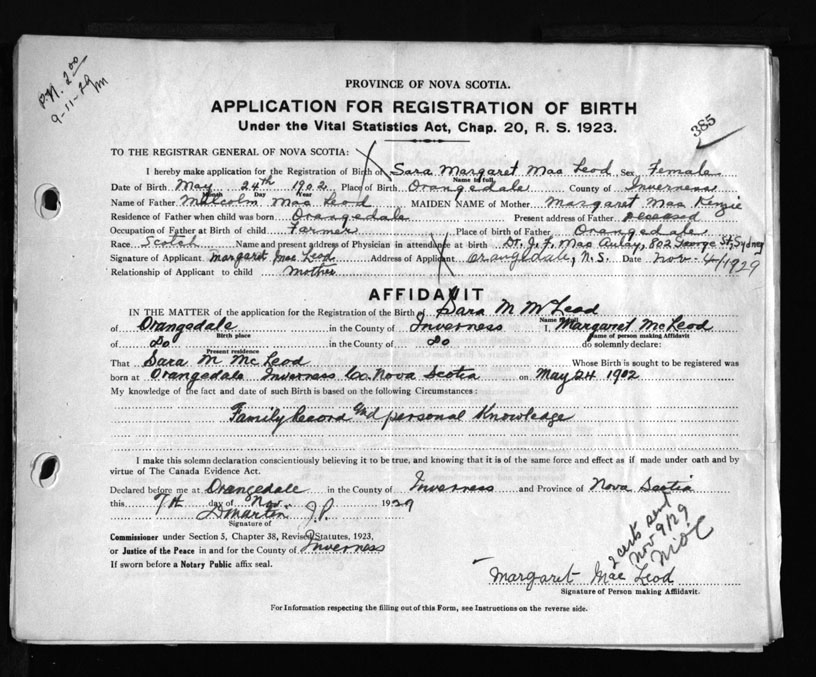 P.N. 2 00
9-11-29
PROVINCE OF NOVA SCOTIA.
APPLICATION FOR REGISTRATION OF BIRTH
Under the Vital Statistics Act, Chap. 20, R. S. 1923.
385
TO THE REGISTRAR GENERAL OF NOVA SCOTIA:
I hereby make application for the Registration of Birth of Sara Margaret Mac Leod Sex Female
Name in full
Date of Birth May 24th 1902 Place of Birth Orangedale County of Inverness
Month Day Year
Name of Father Malcolm Mac Leod MAIDEN NAME of Mother Margaret Mac Kenzie
Residence of Father when child was born Orangedale Present address of Father Deceased
Occupation of Father at Birth of child Farmer Place of birth of Father Orangedale
Race Scotch Name and present address of Physician in attendance at birth Dr. J. F. Mac Aulay, 802 George St, Sydney
Signature of Applicant Margaret Mac Leod Address of Applicant Orangedale, N.S. Date Nov. 4/1929
Relationship of Applicant to child Mother
AFFIDAVIT
IN THE MATTER of the application for the Registration of the Birth of Sara M McLeod
Name in full
of Orangedale in the County of Inverness I, Margaret McLeod
Birth place Name of person making Affidavit
of Do in the County of Do do solemnly declare:
Present residence
That Sara M McLeod Whose Birth is sought to be registered was
born at Orangedale Inverness Co. Nova Scotia on May 24 1902
My knowledge of the fact and date of such Birth is based on the following Circumstances:
Family Record and personal Knowledge
I make this solemn declaration conscientiously believing it to be true, and knowing that it is of the same force and effect as if made under oath and by
virtue of The Canada Evidence Act.
Declared before me at Orangedale in the County of Inverness and Province of Nova Scotia
this 7th day of Nov. 1929
D Martin J.P.
Signature of
Commissioner under Section 5, Chapter 38, Revised Statutes, 1923,
or Justice of the Peace in and for the County of Inverness
If sworn before a Notary Public affix seal.
2 certs sent
Nov 9/29
Margaret Mac Leod
Signature of Person making Affidavit.
For Information respecting the filling out of this Form, see Instructions on the reverse side.